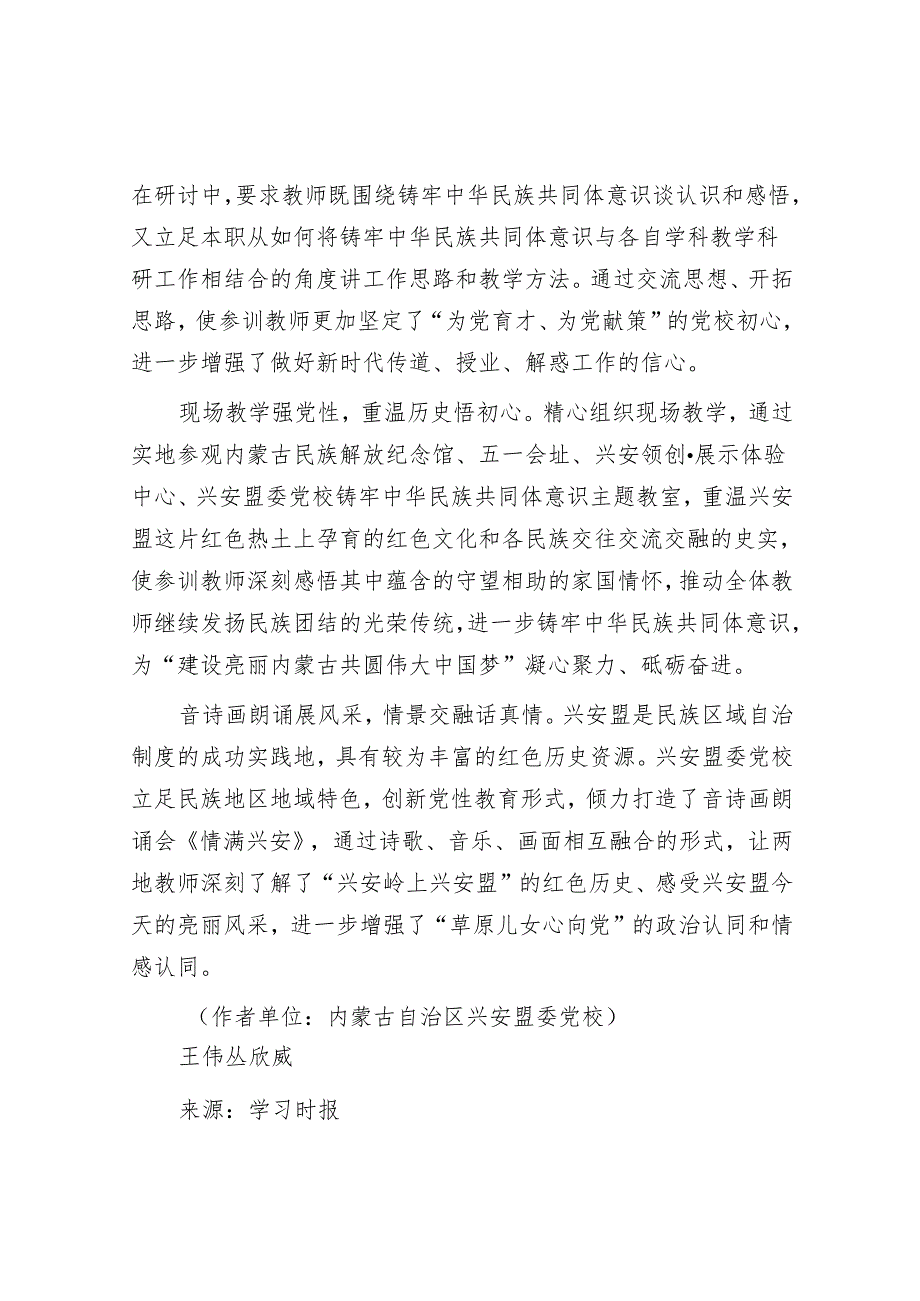 在研讨中，要求教师既围绕铸牢中华民族共同体意识谈认识和感悟，
又立足本职从如何将铸牢中华民族共同体意识与各自学科教学科
研工作相结合的角度讲工作思路和教学方法。通过交流思想、开拓
思路，使参训教师更加坚定了“为党育才、为党献策”的党校初心，
进一步增强了做好新时代传道、授业、解惑工作的信心。
现场教学强党性，重温历史悟初心。精心组织现场教学，通过
实地参观内蒙古民族解放纪念馆、五一会址、兴安领创•展示体验
中心、兴安盟委党校铸牢中华民族共同体意识主题教室，重温兴安
盟这片红色热土上孕育的红色文化和各民族交往交流交融的史实，
使参训教师深刻感悟其中蕴含的守望相助的家国情怀，推动全体教
师继续发扬民族团结的光荣传统，进一步铸牢中华民族共同体意识，
为“建设亮丽内蒙古共圆伟大中国梦”凝心聚力、砥砺奋进。
音诗画朗诵展风采，情景交融话真情。兴安盟是民族区域自治
制度的成功实践地，具有较为丰富的红色历史资源。兴安盟委党校
立足民族地区地域特色，创新党性教育形式，倾力打造了音诗画朗
诵会《情满兴安》，通过诗歌、音乐、画面相互融合的形式，让两
地教师深刻了解了“兴安岭上兴安盟”的红色历史、感受兴安盟今
天的亮丽风采，进一步增强了“草原儿女心向党”的政治认同和情
感认同。
（作者单位：内蒙古自治区兴安盟委党校）
王伟丛欣威
来源：学习时报